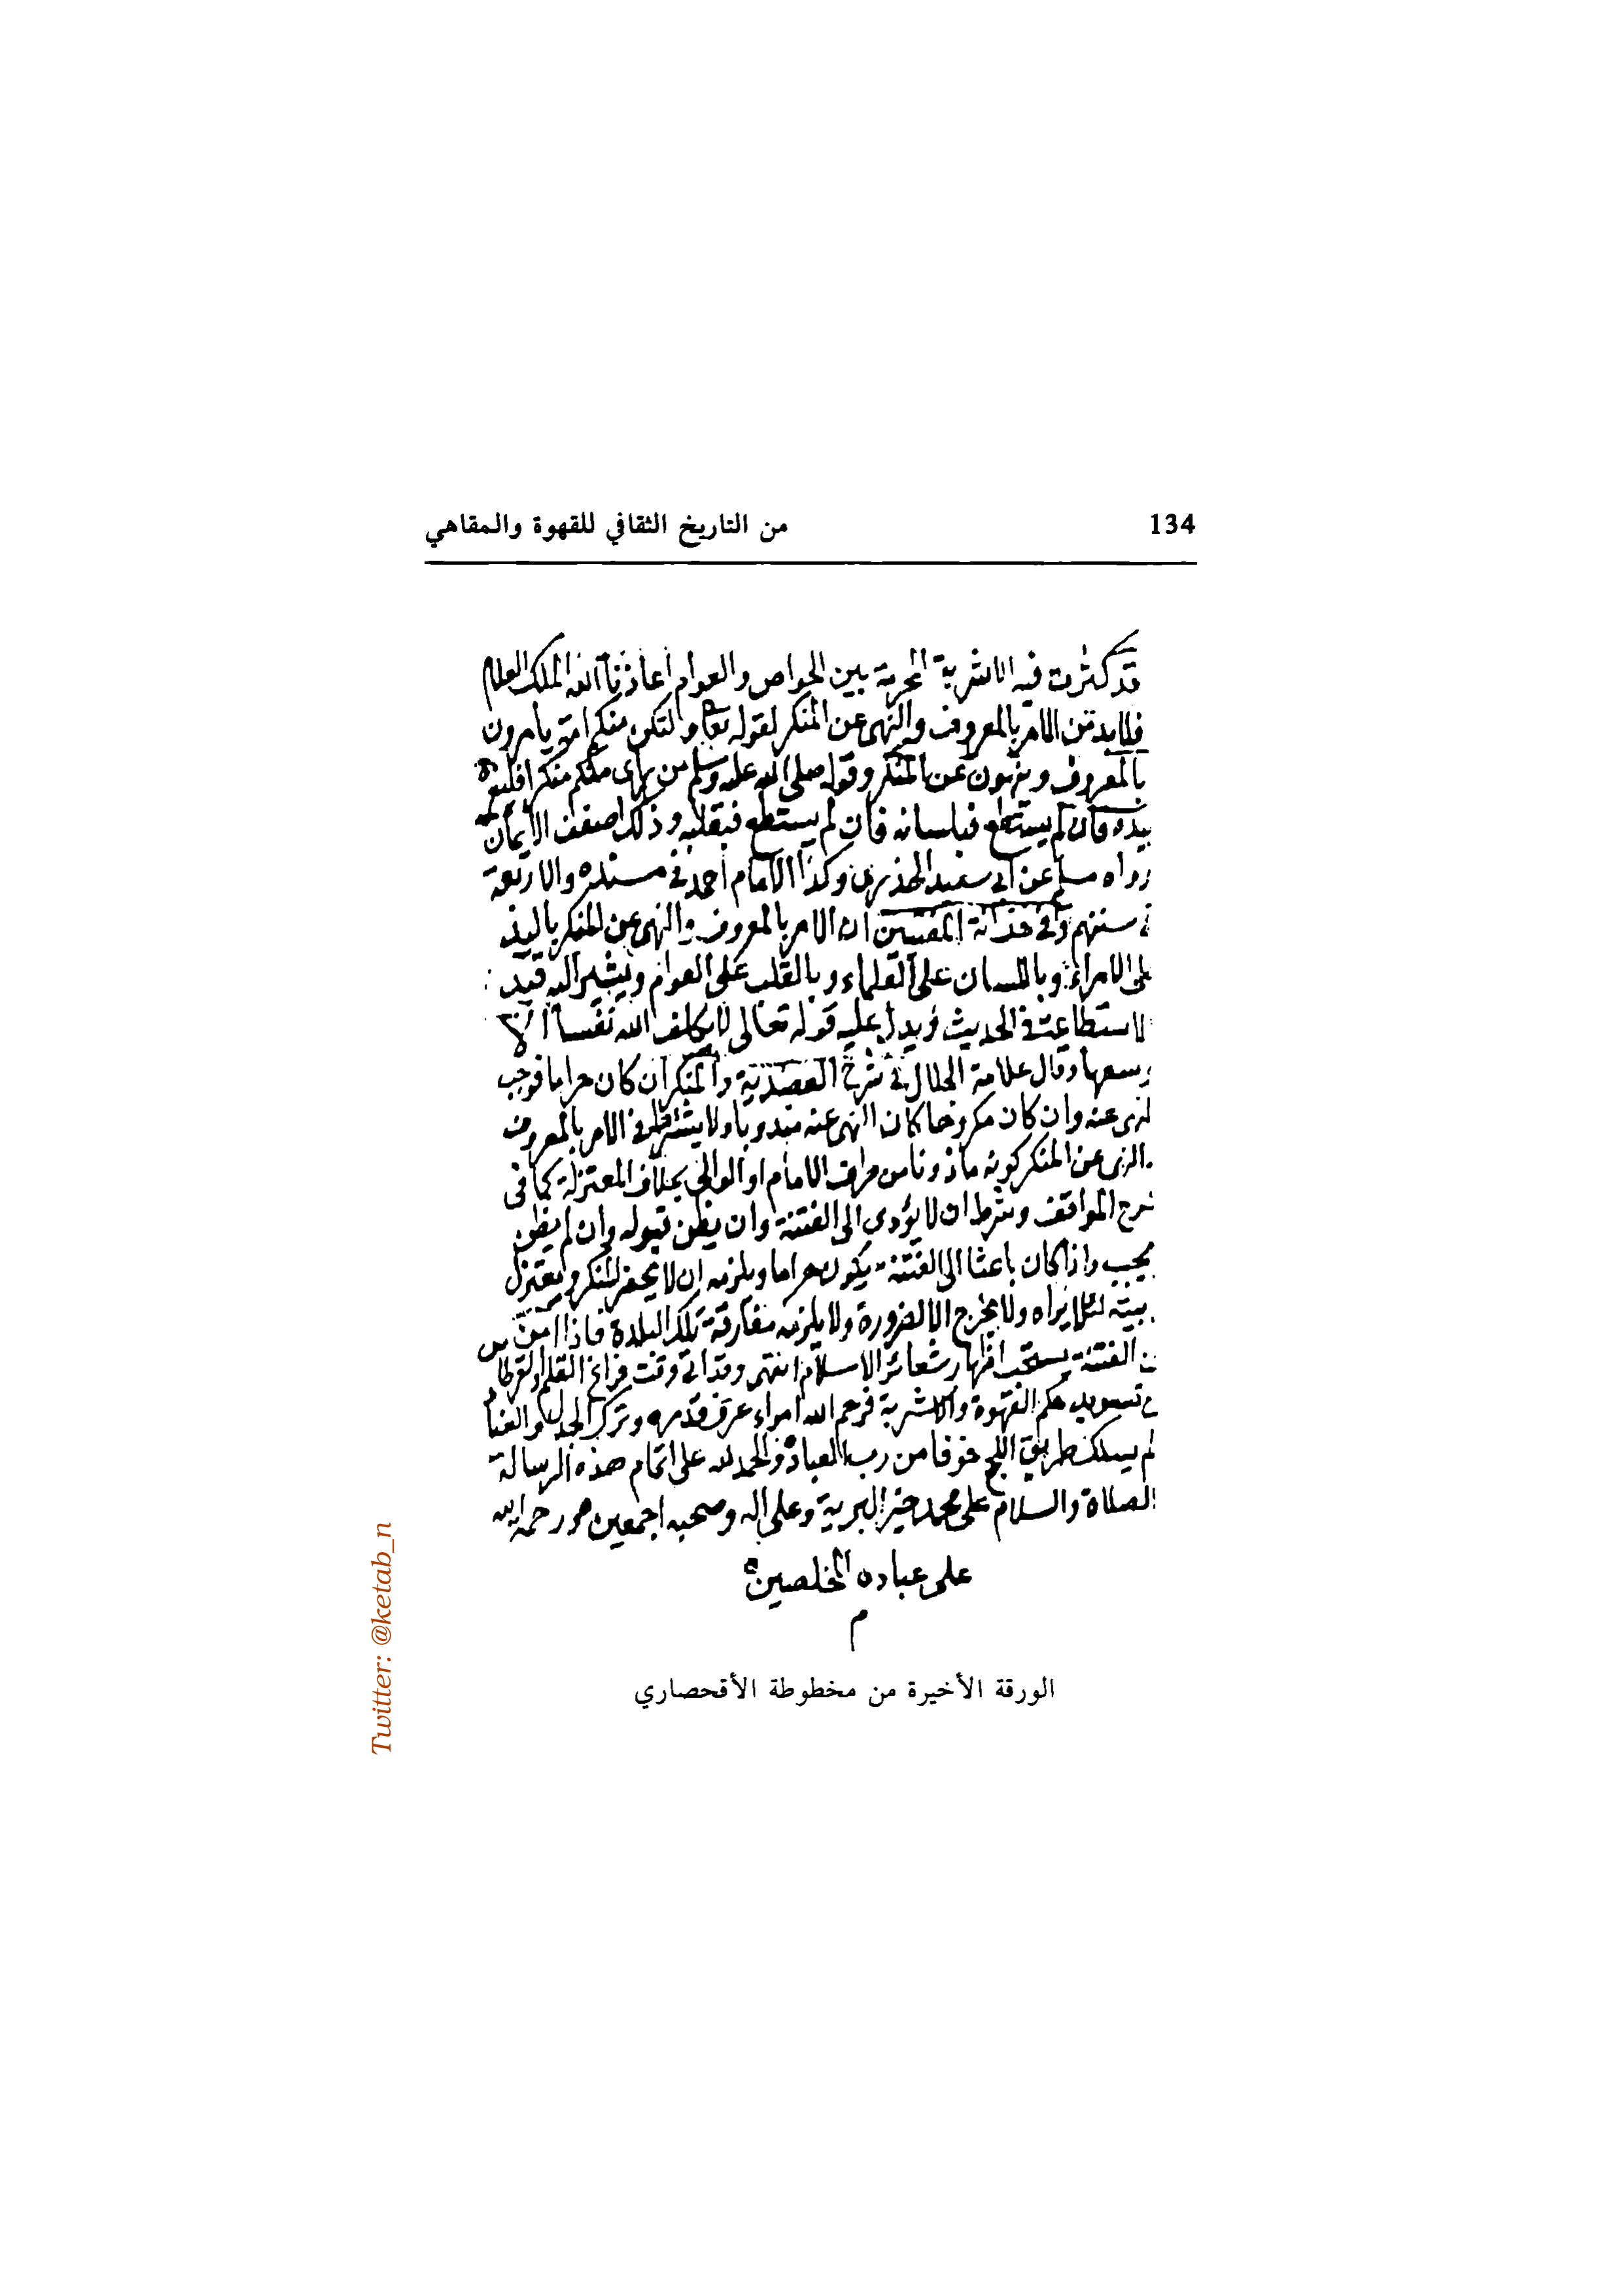 134
من التاريخ الثقافي للقهوة والمقاهي
قد كثرت فيه الاشربة المحرمة بين الخواص والعوام اعاذنا الله الملك العلام
فلابد من الامر بالمعروف والنهى عن المنكر لقوله تعا ولتكن منكم امة يامرون
بالمعروف وينهون عن المنكر وقوله صلى الله عليه وسلم من راى منكم منكرا فليغيره
بيده فان لم يستطع فبلسانه فان لم يستطع فبقلبه وذلك اضعف الايمان
رواه مسلم عن ابى سعيد وكذا الامام احمد فى مسنده والاربعة
سننهم وفى خزانة المفتين ان الامر بالمعروف والنهى عن المنكر باليد
على الامراء وباللسان على العلماء وبالقلب على العوام ويشير اليه قيد
لاستطاعة فى الحديث ويدل عليه قوله تعالى لا يكلف الله نفسا الا
وسعها وقال علامة الجلال فى شرح العضدية والمنكر ان كان حراما فوجب
لنهى عنه وان كان مكروها كان النهى عنه مندوبا ولا يشترط فى الامر بالمعروف
والنهى عن المنكر كونه ماذونا من طرف الامام او الوالى بخلاف المعتزلة كما فى
شرح المواقف وشرط ان لا يؤدى الى الفتنة وان يظن قبوله وان لم يظن
يجب واذا كان باعثا الى الفتنة يكون حراما ويلزمه ان لا يحضر المنكر ويعتزل
بيته لئلا يراه ولا يخرج الا لضرورة ولا يلزمه مفارقة تلك البلدة فاذا امن
من الفتنة يستحب اظهار شعائر الاسلام انتهى وقد اتى وقت فراغ القلم والقرطاس
تسويد حكم القهوة والاشربة فرحم الله امراء عرف قدره وترك الجدل والعنا
لم يسلك طريق خوفا من رب العباد والحمد لله على اتمام هذه الرسالة
الصلاة والسلام على محمد خير البرية وعلى اله وصحبه اجمعين ورحمة الله
على عباده المخلصين
م
الورقة الأخيرة من مخطوطة الأقحصاري
Twitter: @ketab_n